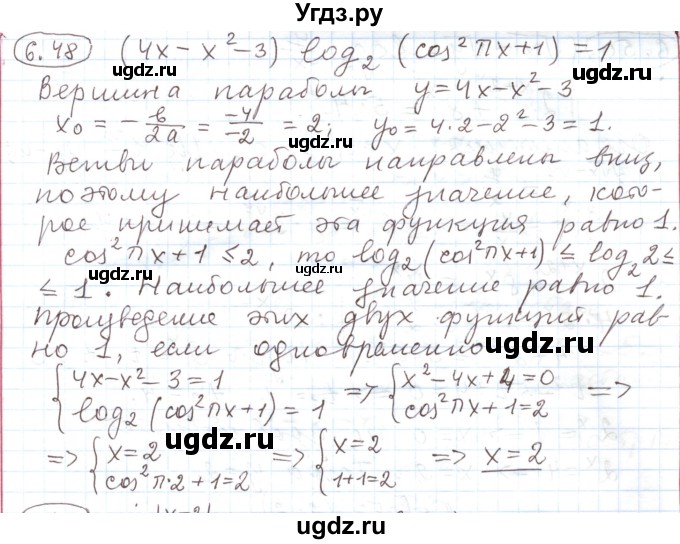 Угдз.ру
6.48 (4x - x² - 3) log₂ (cos²πx+1) = 1
Вершина параболы y = 4x - x² - 3
x₀ = - в/2a = -4/-2 = 2; y₀ = 4·2 - 2² - 3 = 1.
Ветви параболы направлены вниз,
поэтому наибольшее значение, кото-
рое принимает эта функция равно 1.
cos²πx+1 ≤ 2, то log₂(cos²πx+1) ≤ log₂2 ≤
≤ 1. Наибольшее значение равно 1.
Произведение этих двух функций рав-
но 1, если одновременно
{ 4x - x² - 3 = 1 => { x² - 4x + 4 = 0 =>
{ log₂(cos²πx+1) = 1 { cos²πx + 1 = 2
=> { x = 2 => { x = 2 => x = 2
{ cos²π·2 + 1 = 2 { 1+1=2
uhdgz.ru